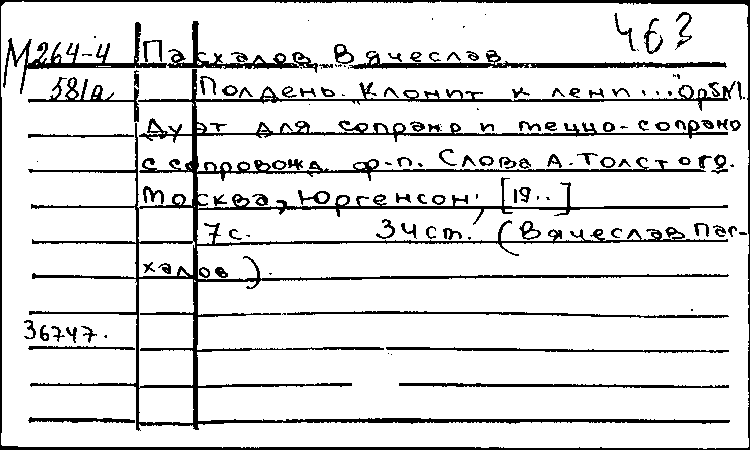 463
М264-4 Пасхалов, Вячеслав
581а Полдень. "Клонит к лени..." Op5№1.
Дуэт для сопрано и меццо-сопрано
с сопровожд. ф-п. Слова А. Толстого.
Москва, Юргенсон, [19..]
7с. 34ст. (Вячеслав Пас-
халов).
36747.